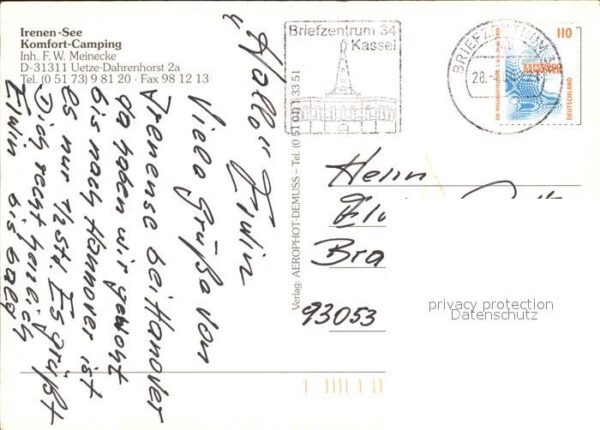 Irenen-See
Komfort-Camping
Inh. F.W. Meinecke
D-31311 Uetze-Dahrenhorst 2a
Tel. (0 51 73) 9 81 20 · Fax 98 12 13
Hallo Erwin
Viele Grüße von
Irenensee bei Hanover
da haben wir gewohnt
bis nach Hannover ist
es nur 1/2 Std. Es grüßt
Dich recht herzlich
bis bald
Verlag: AEROPHOT-DEMUSS – Tel. (0 51 01) 1 33 51
Briefzentrum 34
Kassel
BRIEFZENTRUM
28.
110
DEUTSCHLAND
Herrn
Bra
93053
privacy protection
Datenschutz